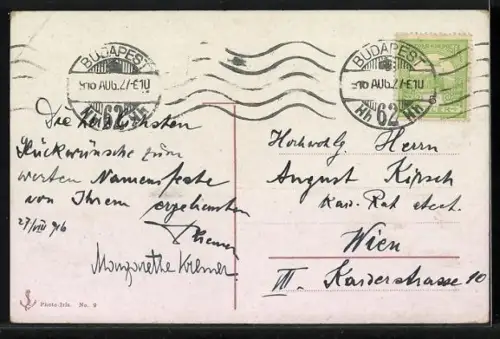 BUDAPEST
916 AUG.27-E10
62
Hh Hh
BUDAPEST
916 AUG.27-E10
62
Hh
Die herzlichsten
Glückwünsche zum
werten Namensfeste
von Ihrem ergebensten
27/VIII 916
Margarethe Kremer
Hochwohlg. Herrn
August Kirsch
Kais. Rat etect.
Wien
III. Kaiserstrasse 10
Photo-Iris. No. 9